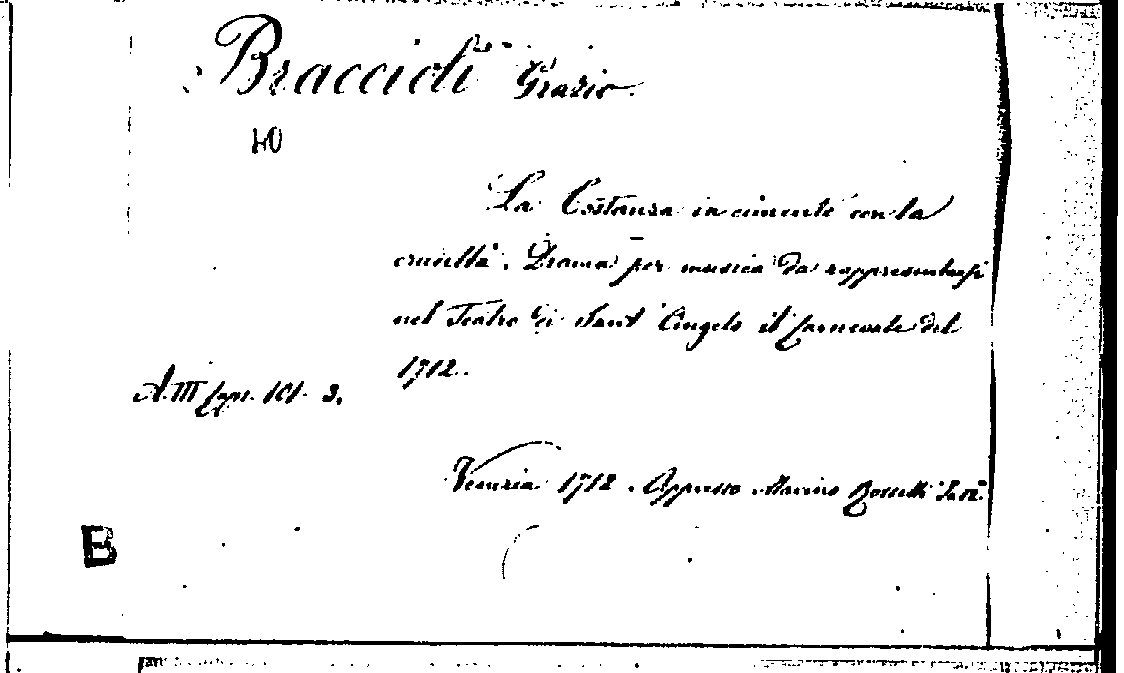 Braccioli Grazio.
40
La Costanza in cimento con la
crudeltà. Drama per musica da rappresentarsi
nel Teatro di Sant' Angelo il Carnevale del
1712.
A. III 101. 3.
Venezia 1712. Appresso Marino Rossetti In 12°.
B